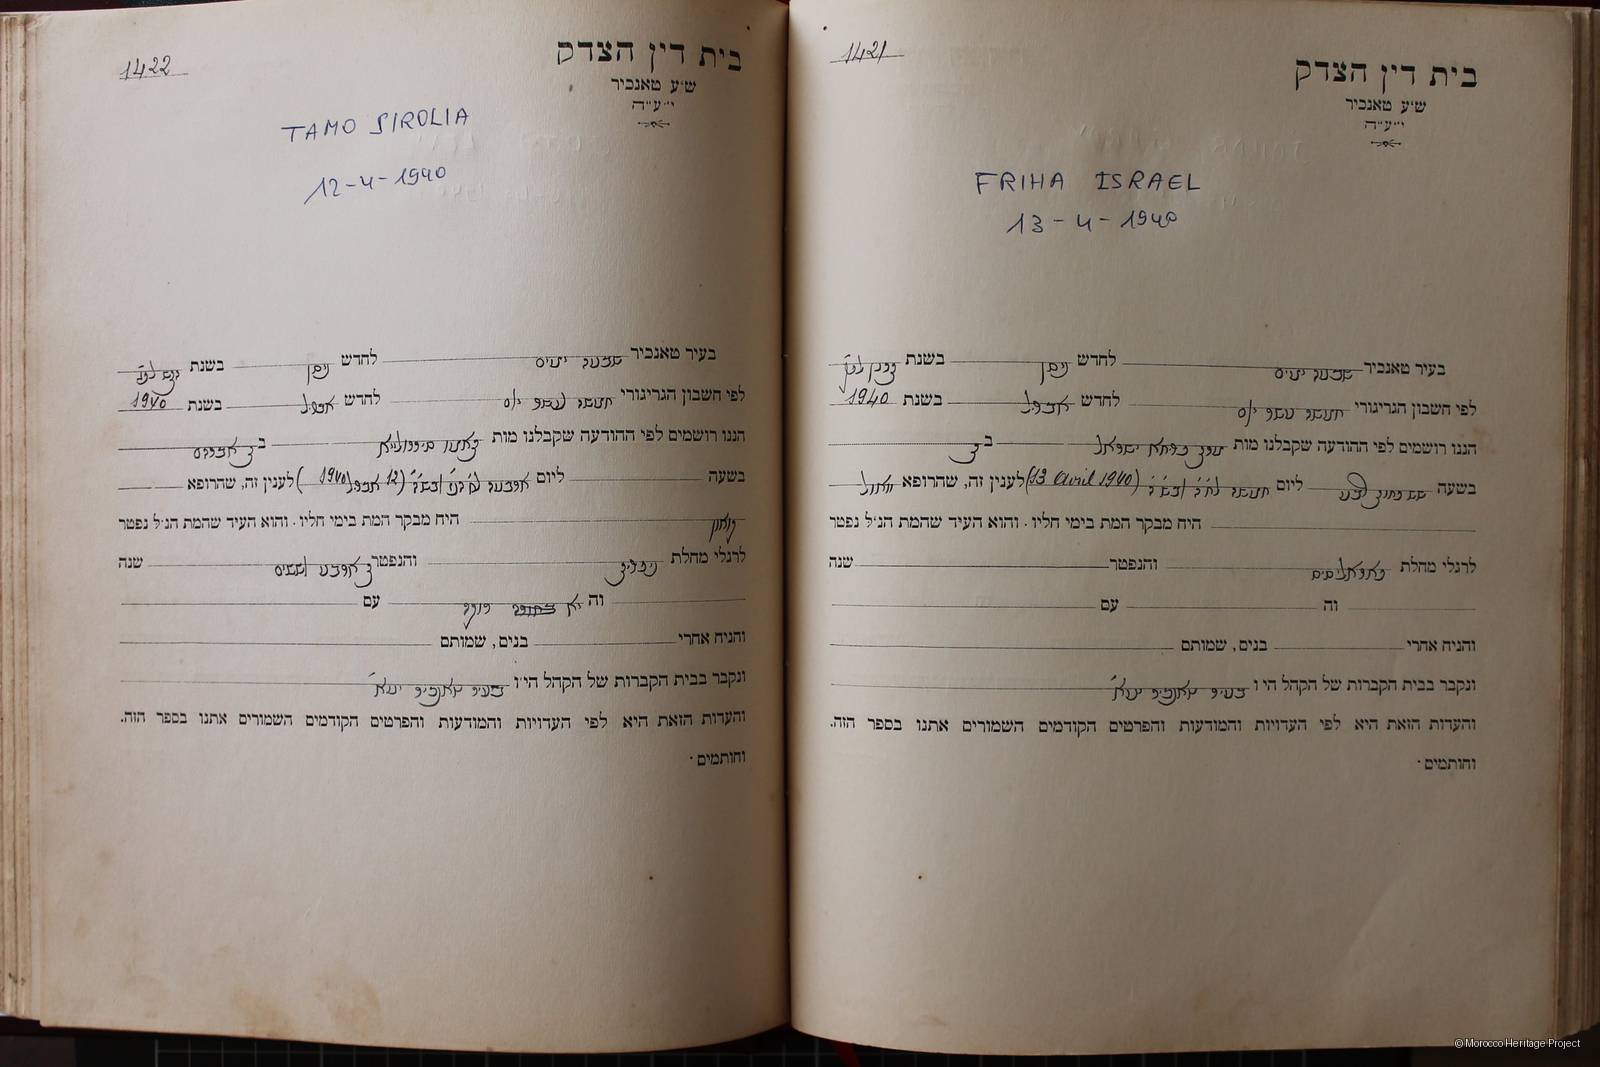 1421
בית דין הצדק
ש״ע טאנכיר
י״ע״ה
FRIHA ISRAEL
13-4-1940
בעיר טאנכיר שבעה ימים לחדש ניסן בשנת
לפי חשבון הגריגורי חמשה עשר יום לחדש אבריל בשנת 1940
הננו רושמים לפי ההודעה שקבלנו מות פריחא ישראל ב
בשעה ליום (13 Avril 1940) לענין זה, שהרופא
היה מבקר המת בימי חליו. והוא העיד שהמת הנ״ל נפטר
לרגלי מחלת והנפטר שנה
וה עם
והניח אחרי בנים, שמותם
ונקבר בבית הקברות של הקהל הי״ו בעיר טאנכיר יע״א
והעדות הזאת היא לפי העדויות והמודעות והפרטים הקודמים השמורים אתנו בספר הזה.
וחותמים.
1422
בית דין הצדק
ש״ע טאנכיר
י״ע״ה
TAMO SIROLIA
12-4-1940
בעיר טאנכיר שבעה ימים לחדש ניסן בשנת
לפי חשבון הגריגורי חמשה עשר יום לחדש אבריל בשנת 1940
הננו רושמים לפי ההודעה שקבלנו מות ב
בשעה ליום (12 אבריל 1940) לענין זה, שהרופא
היה מבקר המת בימי חליו. והוא העיד שהמת הנ״ל נפטר
לרגלי מחלת והנפטר שנה
וה עם
והניח אחרי בנים, שמותם
ונקבר בבית הקברות של הקהל הי״ו בעיר טאנכיר יע״א
והעדות הזאת היא לפי העדויות והמודעות והפרטים הקודמים השמורים אתנו בספר הזה.
וחותמים.
© Morocco Heritage Project